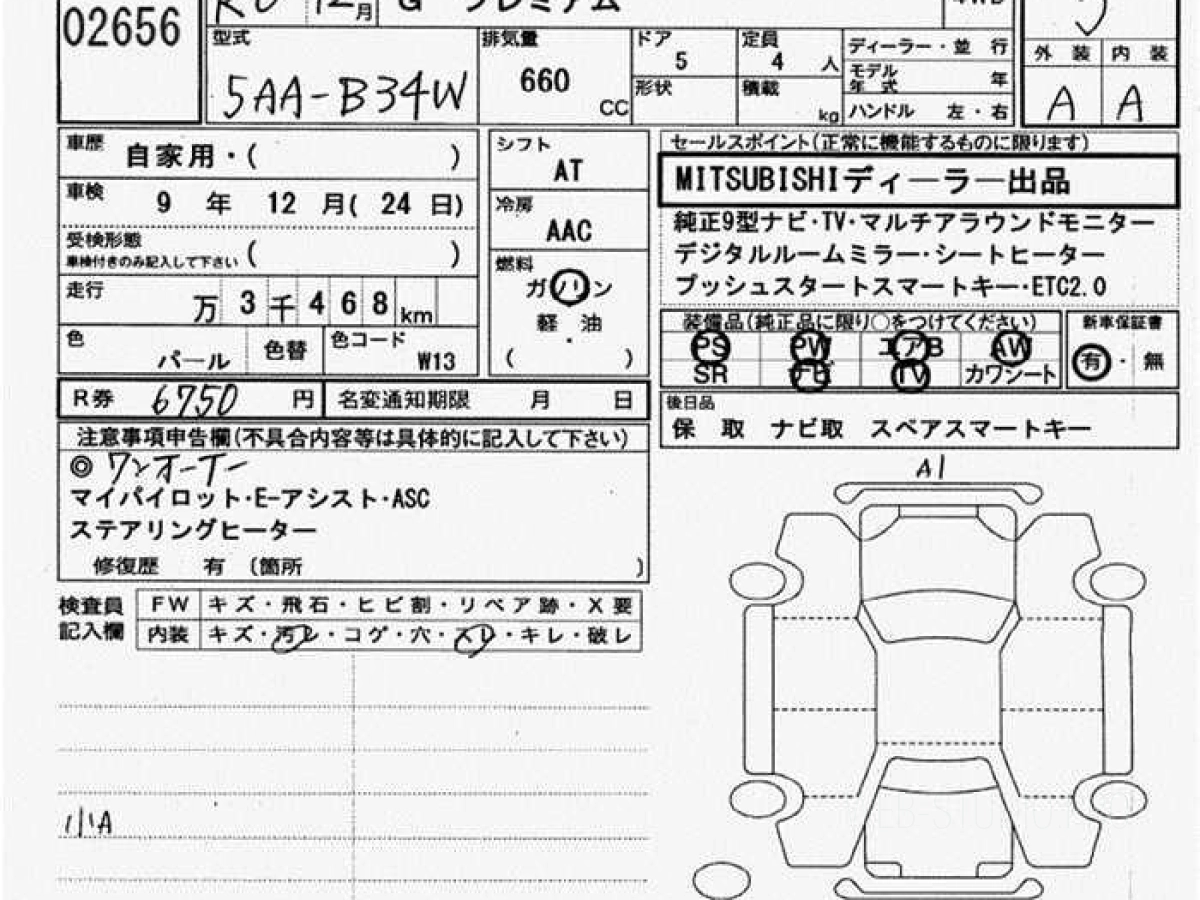 02656
月 G プレミアム
型式 5AA-B34W
排気量 660 CC
ドア 5
形状
定員 4 人
積載 kg
ディーラー・並 行
モデル年式 年
ハンドル 左・右
外 装 内 装
A A
車歴 自家用・( )
車検 9 年 12 月( 24 日)
受検形態 ( )
車検付きのみ記入して下さい
走行 万 3 千 4 6 8 km
色 パール 色替 色コード W13
R券 6750 円 名変通知期限 月 日
シフト AT
冷房 AAC
燃料
ガソリン
・
軽 油
( )
セールスポイント(正常に機能するものに限ります)
MITSUBISHIディーラー出品
純正9型ナビ・TV・マルチアラウンドモニター
デジタルルームミラー・シートヒーター
プッシュスタートスマートキー・ETC2.0
装備品(純正品に限り○をつけてください) 新車保証書
PS PW エアB AW 有・無
SR ナビ TV カワシート
後日品
保 取 ナビ取 スペアスマートキー
注意事項申告欄(不具合内容等は具体的に記入して下さい)
◎ ワンオーナー
マイパイロット・E-アシスト・ASC
ステアリングヒーター
修復歴 有 (箇所 )
検査員記入欄
FW キズ・飛石・ヒビ割・リペア跡・X要
内装 キズ・汚レ・コゲ・穴・スレ・キレ・破レ
A1